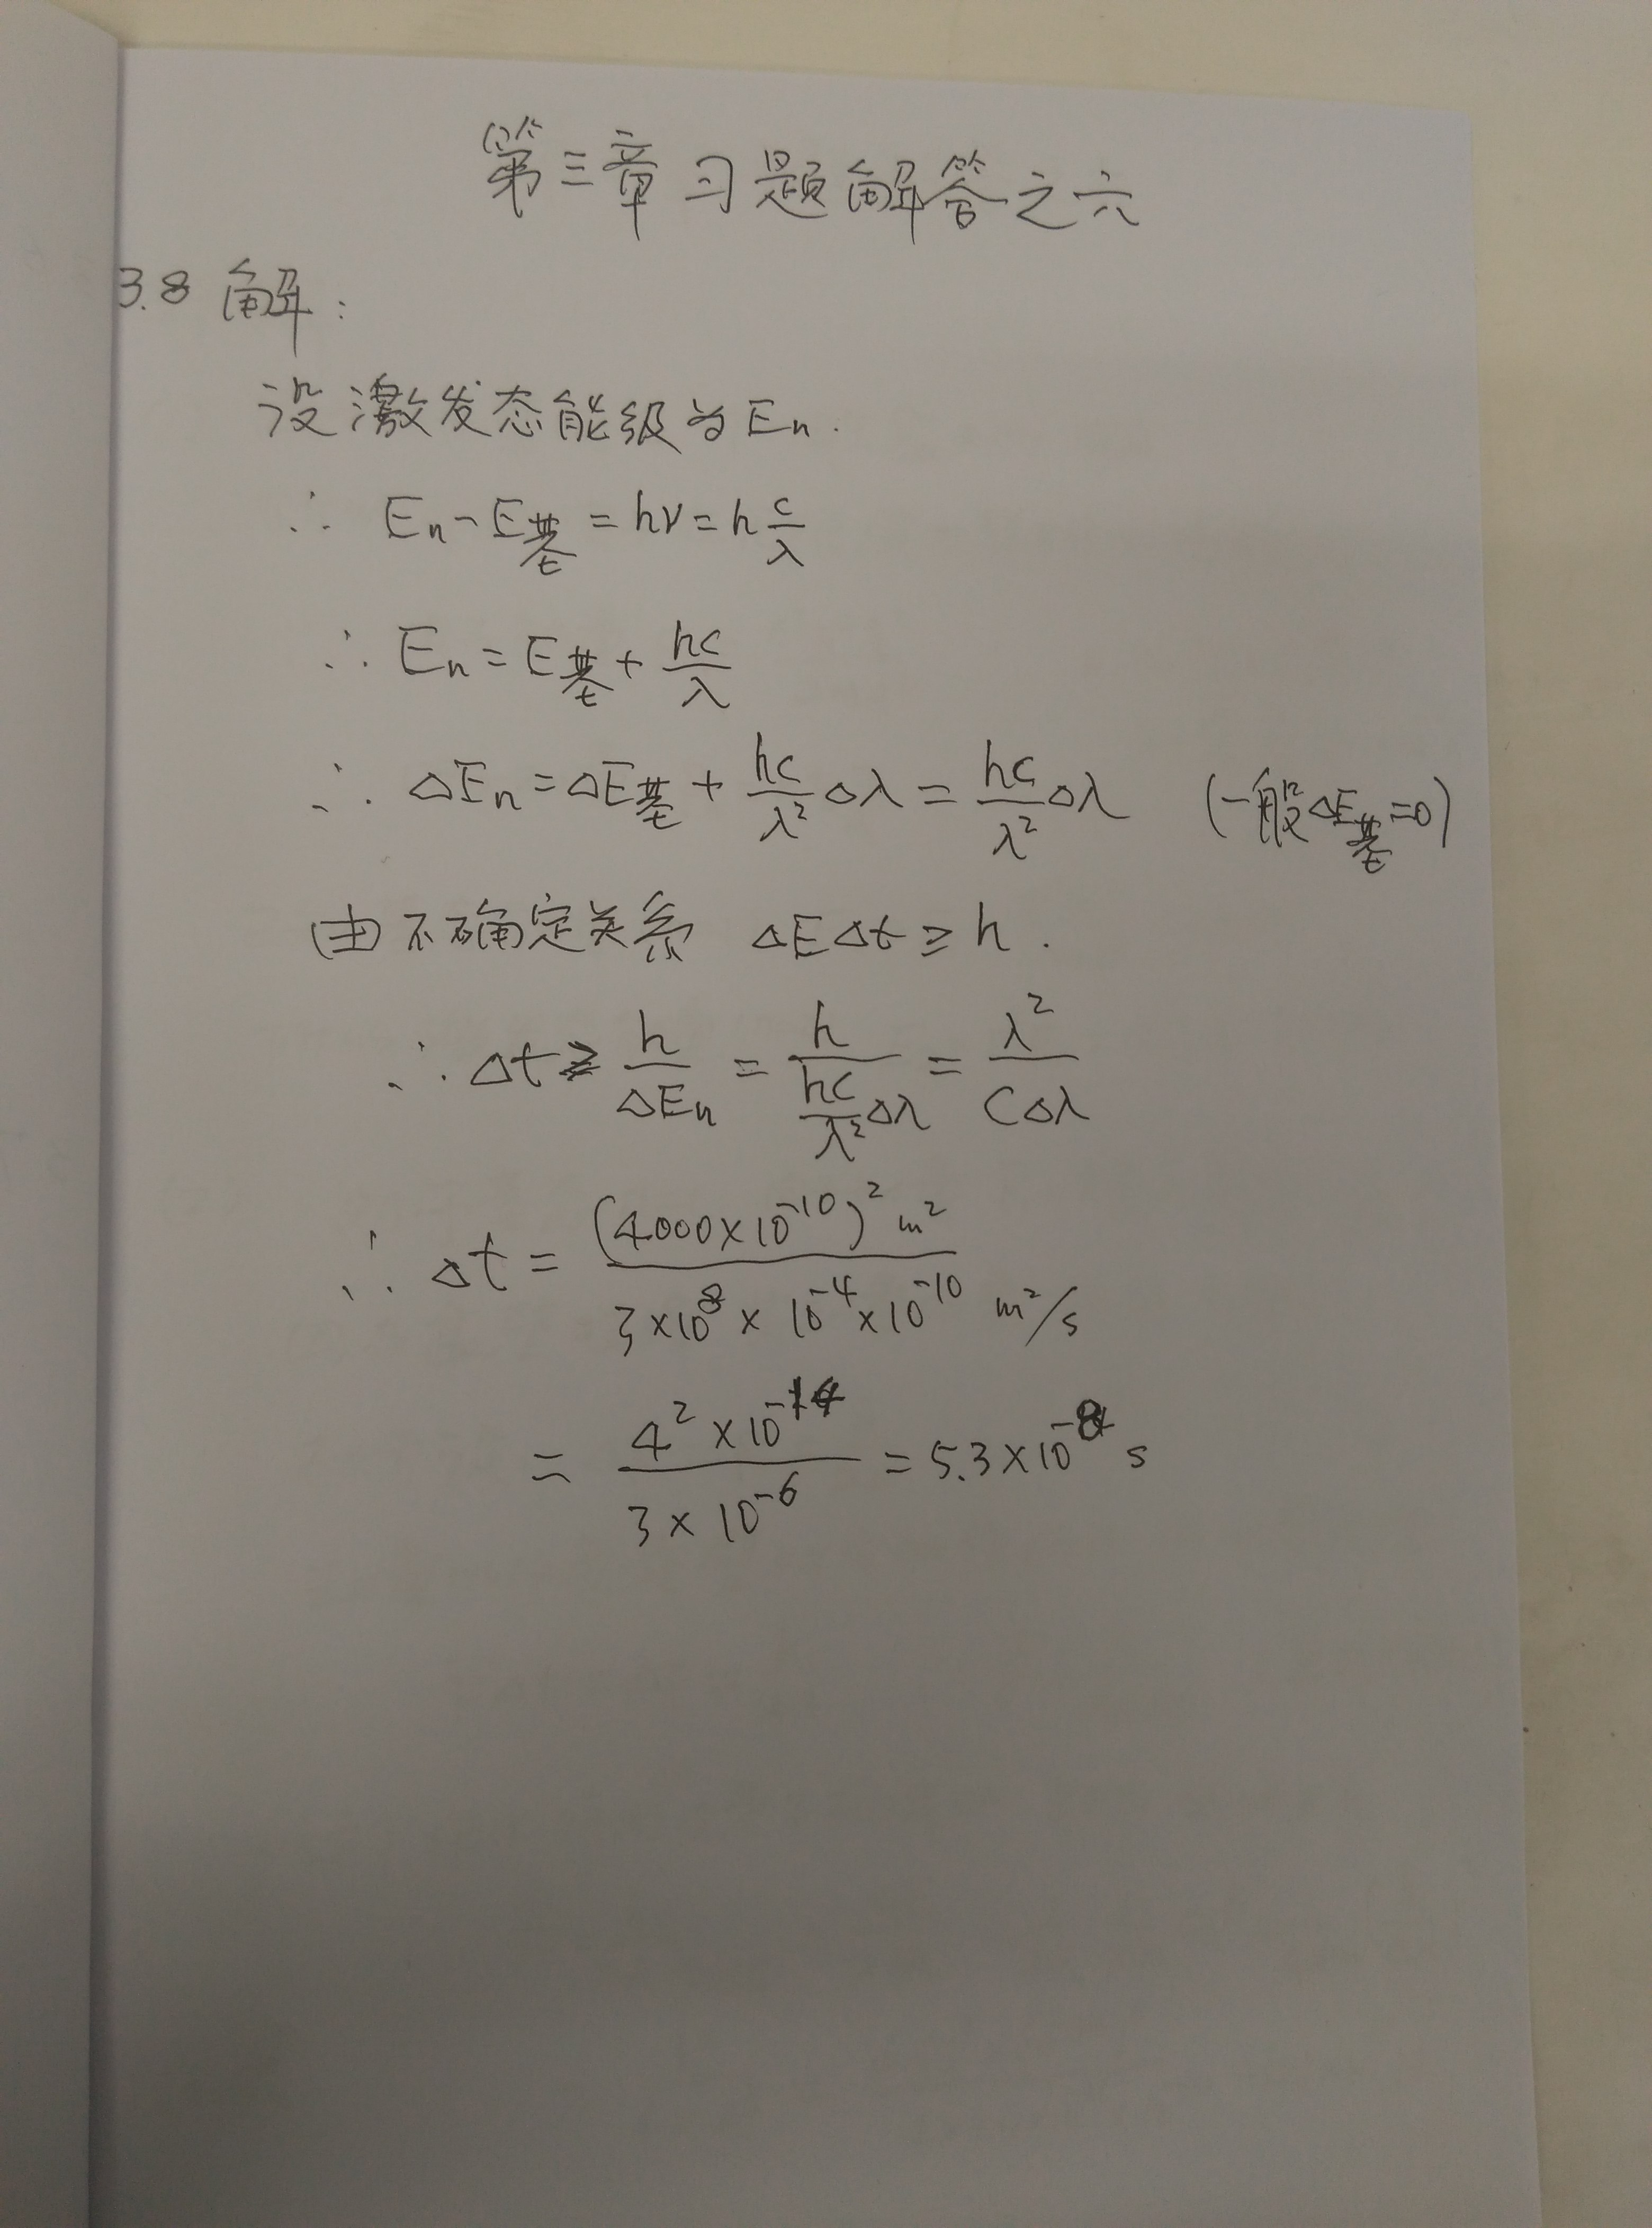 第三章习题解答之六
3.8 解:
设激发态能级为Eₙ.
∴ Eₙ-E基 = hν = h c/λ
∴ Eₙ = E基 + hc/λ
∴ ΔEₙ = ΔE基 + hc/λ² Δλ = hc/λ² Δλ (一般ΔE基=0)
由不确定关系 ΔEΔt ≥ h.
∴ Δt ≥ h/ΔEₙ = h/(hc/λ² Δλ) = λ²/(CΔλ)
∴ Δt = (4000×10⁻¹⁰)² m² / 3×10⁸×10⁻⁴×10⁻¹⁰ m²/s
= 4²×10⁻¹⁴ / 3×10⁻⁶ = 5.3×10⁻⁸ s